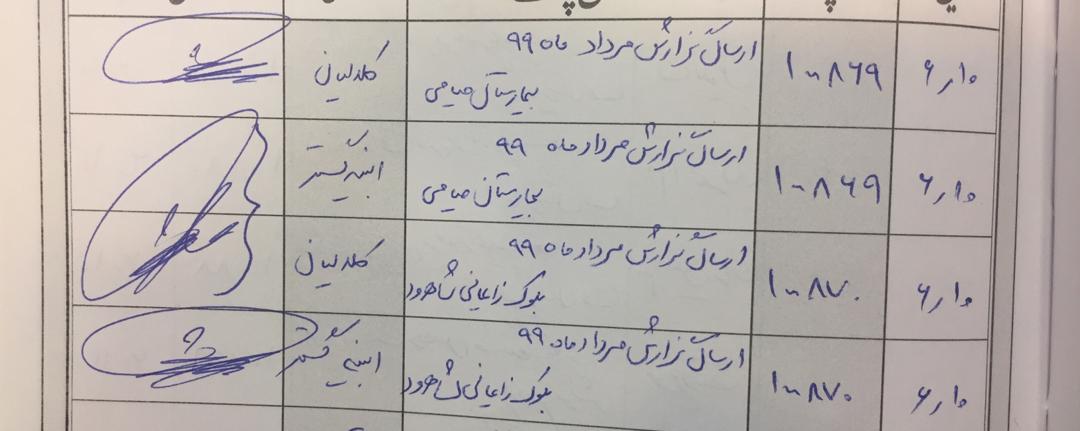 ۶٫۱۵
۱۰۸۶۹
ارسال گزارش مرداد ماه ۹۹
بیمارستان میامی
کلدلیان
۶٫۱۵
۱۰۸۶۹
ارسال گزارش مرداد ماه ۹۹
بیمارستان میامی
ابنیه گستر
۶٫۱۵
۱۰۸۷۰
ارسال گزارش مرداد ماه ۹۹
بلوک زایمانی شاهرود
کلدلیان
۶٫۱۵
۱۰۸۷۰
ارسال گزارش مرداد ماه ۹۹
بلوک زایمانی شاهرود
ابنیه گستر